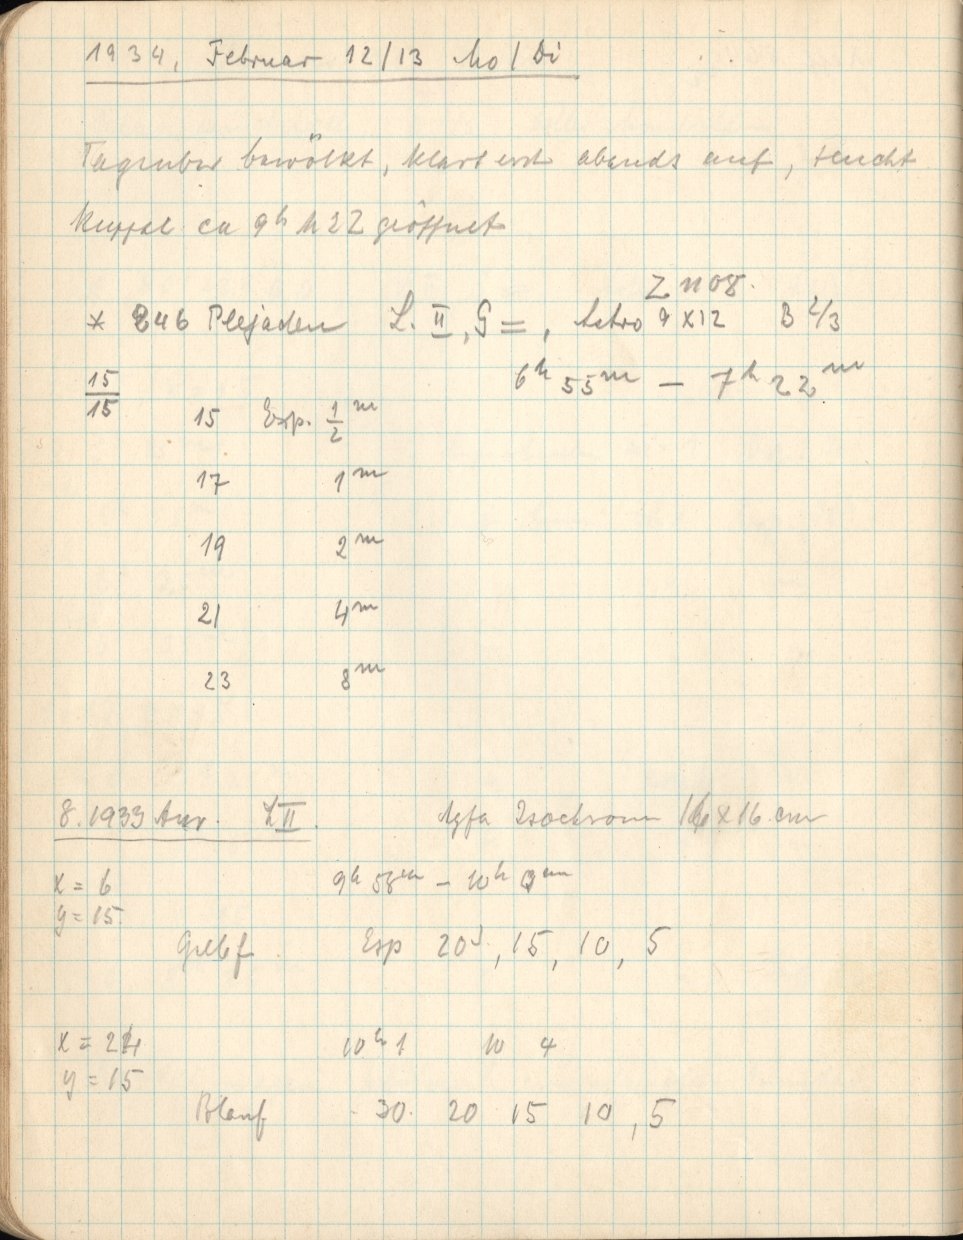 1934, Februar 12/13 Mo/Di
Tagsüber bewölkt, klart erst abends auf, feucht
Kuppel ca 9h M22 geöffnet
Z 1108.
* 846 Plejaden L. II, G = , Astro 9 x 12 B 2/3
15/15 6h 55m – 7h 22m
15 Exp. 1/2 m
17 1m
19 2m
21 4m
23 8m
8.1933 Aur. L II. Agfa Isochrom 16 x 16 cm
x = 6 9h 58m – 10h 0m
y = 15
Gelbf. Exp 20s, 15, 10, 5
x = 24 10h 1 10 4
y = 15
Blauf 30. 20 15 10, 5